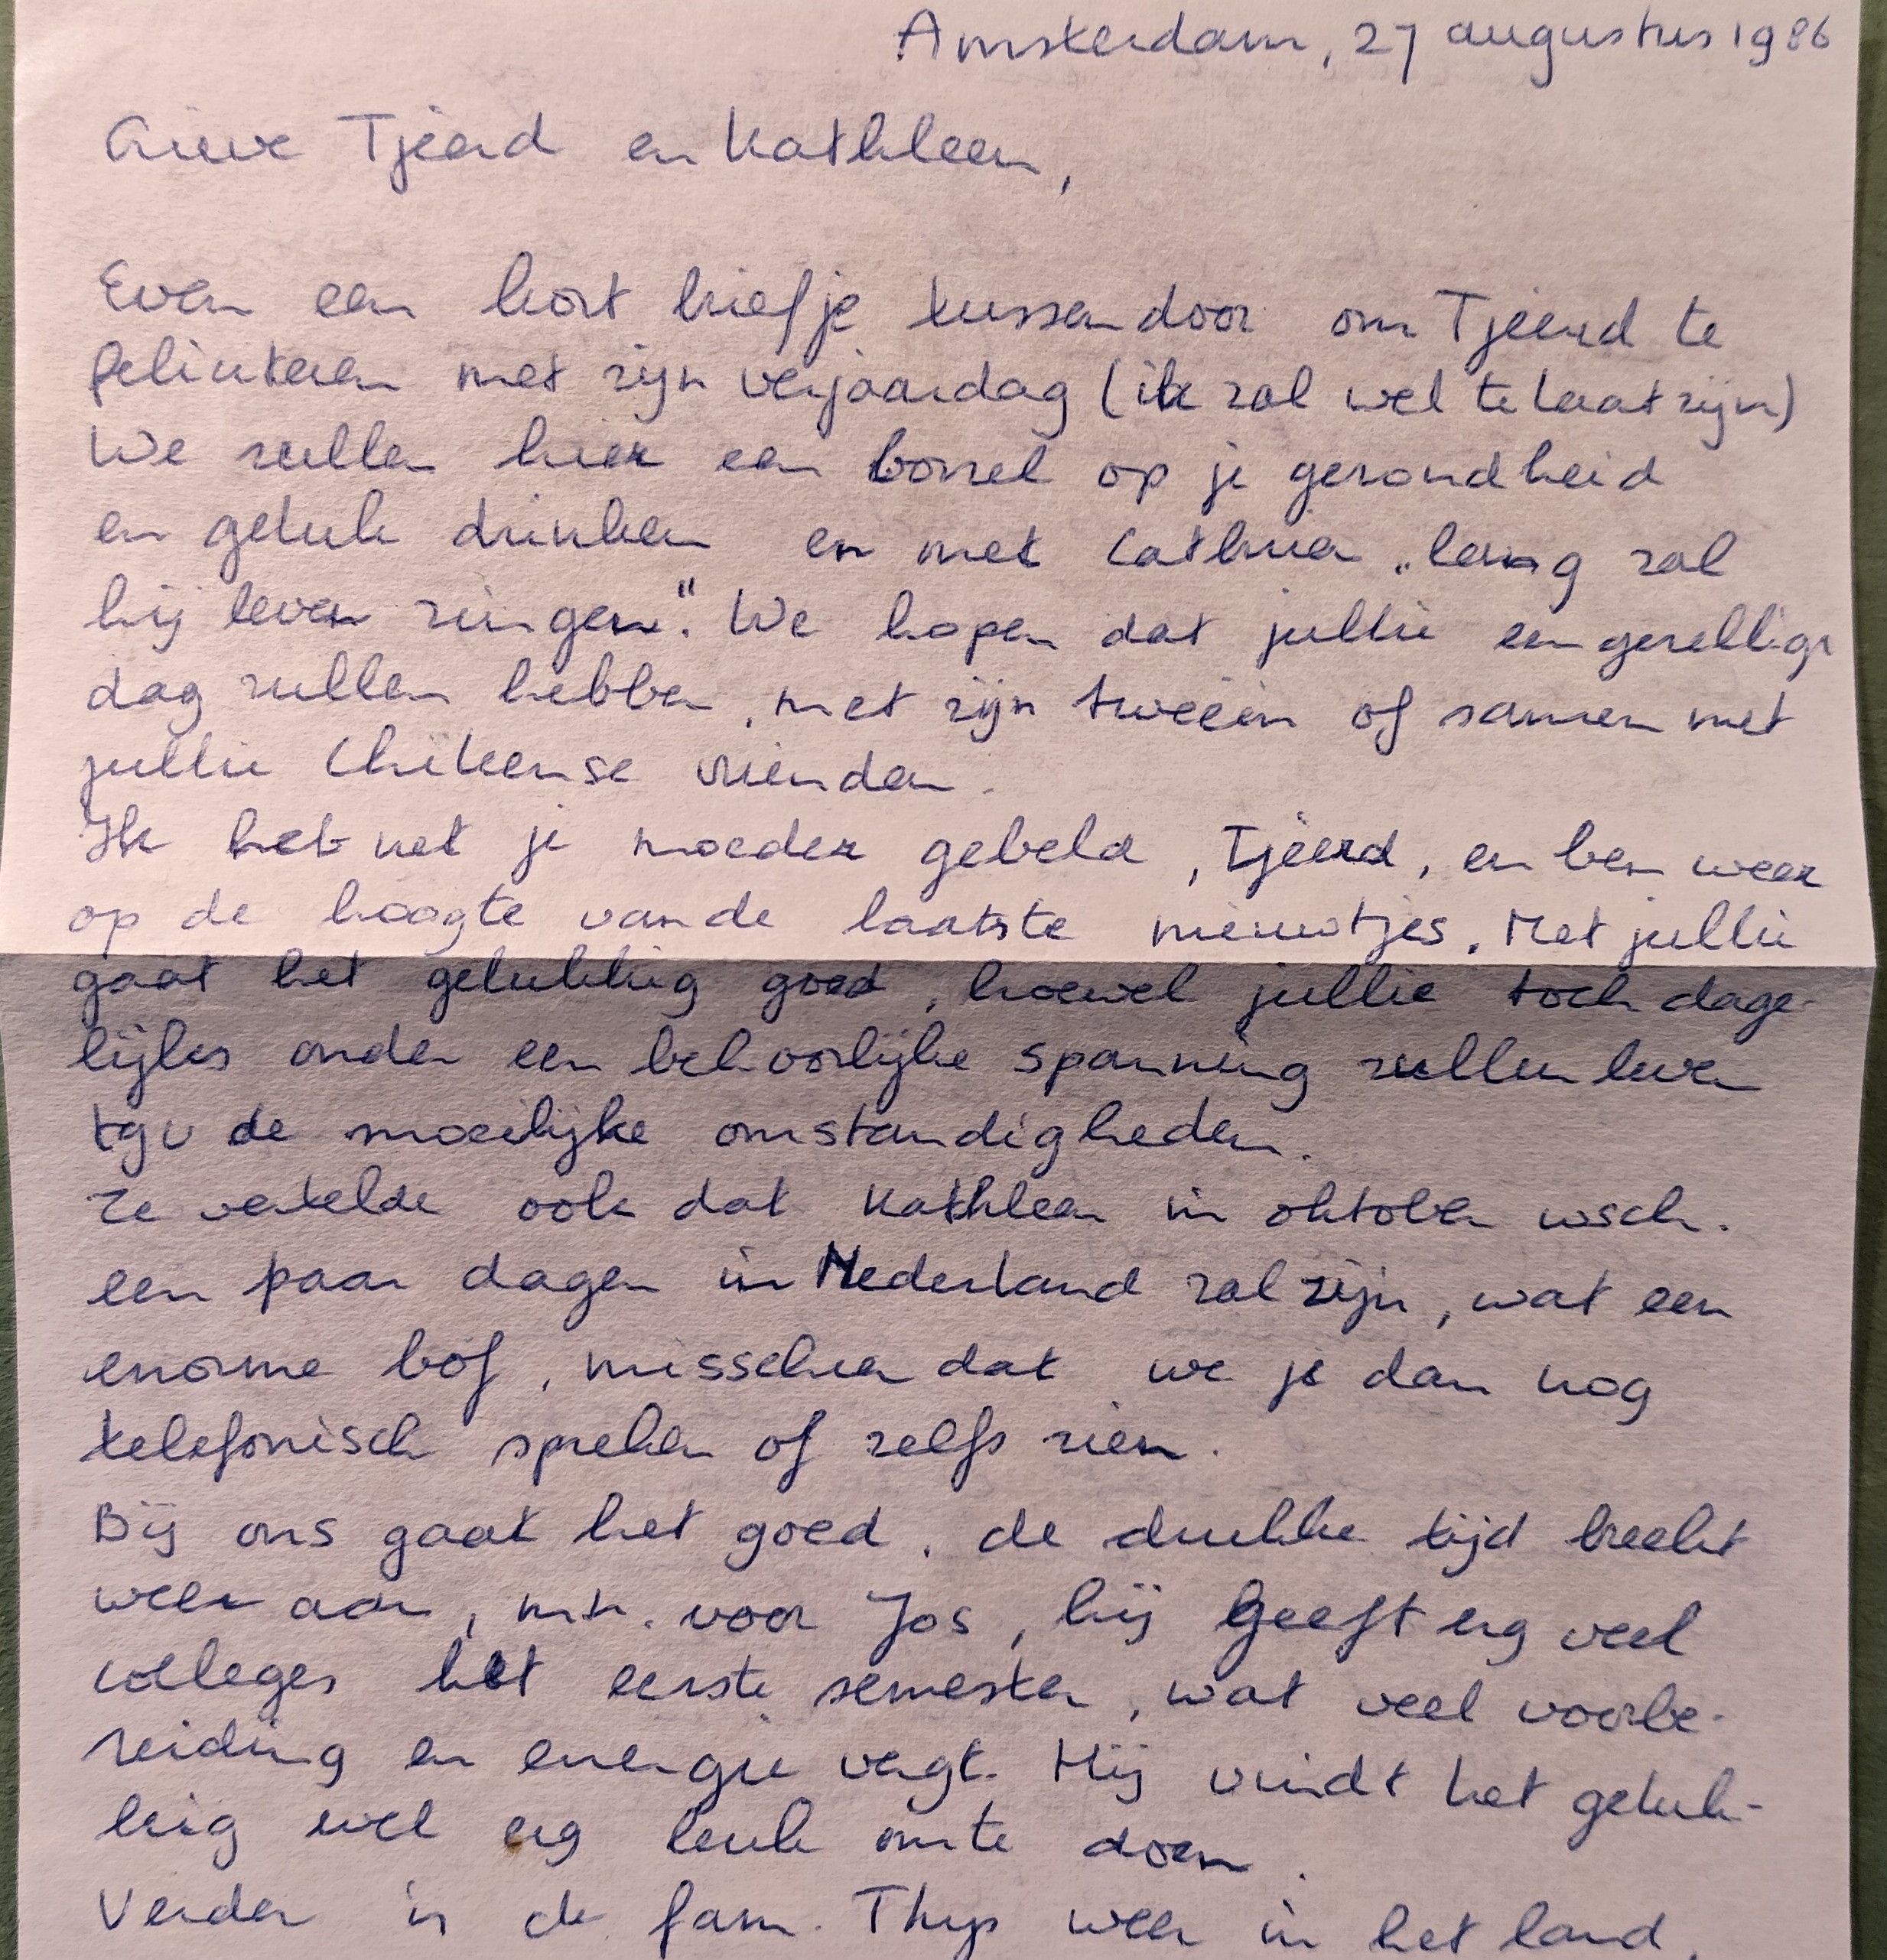 Amsterdam, 27 augustus 1986
Lieve Tjeerd en Kathleen,
Even een kort briefje tussendoor om Tjeerd te
feliciteren met zijn verjaardag (ik zal wel te laat zijn)
We zullen hier een borrel op je gezondheid
en geluk drinken en met Cathrien „lang zal
hij leven zingen". We hopen dat jullie een gezellige
dag zullen hebben, met zijn tweeën of samen met
jullie Chileense vrienden.
Ik heb net je moeder gebeld, Tjeerd, en ben weer
op de hoogte van de laatste nieuwtjes. Met jullie
gaat het gelukkig goed, hoewel jullie toch dage-
lijks onder een behoorlijke spanning zullen leven
tgv de moeilijke omstandigheden.
Ze vertelde ook dat Kathleen in oktober wsch.
een paar dagen in Nederland zal zijn, wat een
enorme bof, misschien dat we je dan nog
telefonisch spreken of zelfs zien.
Bij ons gaat het goed, de drukke tijd breekt
weer aan, m.n. voor Jos, hij geeft erg veel
colleges het eerste semester, wat veel voorbe-
reiding en energie vergt. Hij vindt het geluk-
kig wel erg leuk om te doen.
Verder is de fam. Thijs weer in het land,